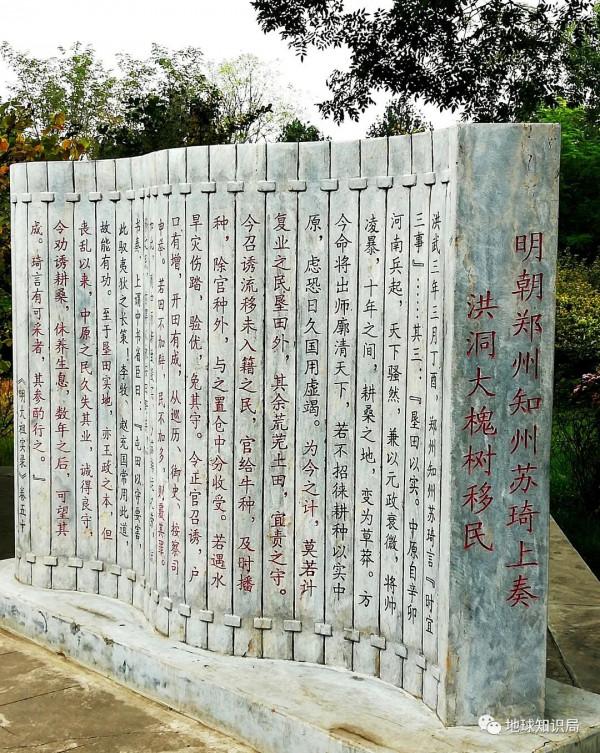 明朝郑州知州苏琦上奏
洪洞大槐树移民
洪武三年三月丁酉，郑州知州苏琦言『时宜
三事』……其三：『垦田以实。中原自辛卯
河南兵起，天下骚然，兼以元政衰微，将帅
凌暴，十年之间，耕桑之地，变为草莽。方
今命将出师廓清天下，若不招徕耕种以实中
原，虑恐日久国用虚竭。为今之计，莫若计
复业之民垦田外，其余荒芜土田，宜责之守。
今召诱流移未入籍之民，官给牛种，及时播
种，除官种外，与之置仓中分收受。若遇水
旱灾伤踏，验优，免其守。令正官召诱，户
口有增，开田有成，从巡历、御史、按察司
申恭。若田不加辟，民不加多，则覈其罪。
书奏，上谓中书省臣曰：『屯田以守要害
此驭夷狄之长策！李牧、赵充国常用此道，
故能有功。至于垦田实地，亦王政之本。但
丧乱以来，中原之民久失其业，诚得良守
令劝诱耕桑，休养生息，数年之后，可望其
成。琦言有可采者，其参酌行之。』
《明太祖实录》卷五十
地球知识局